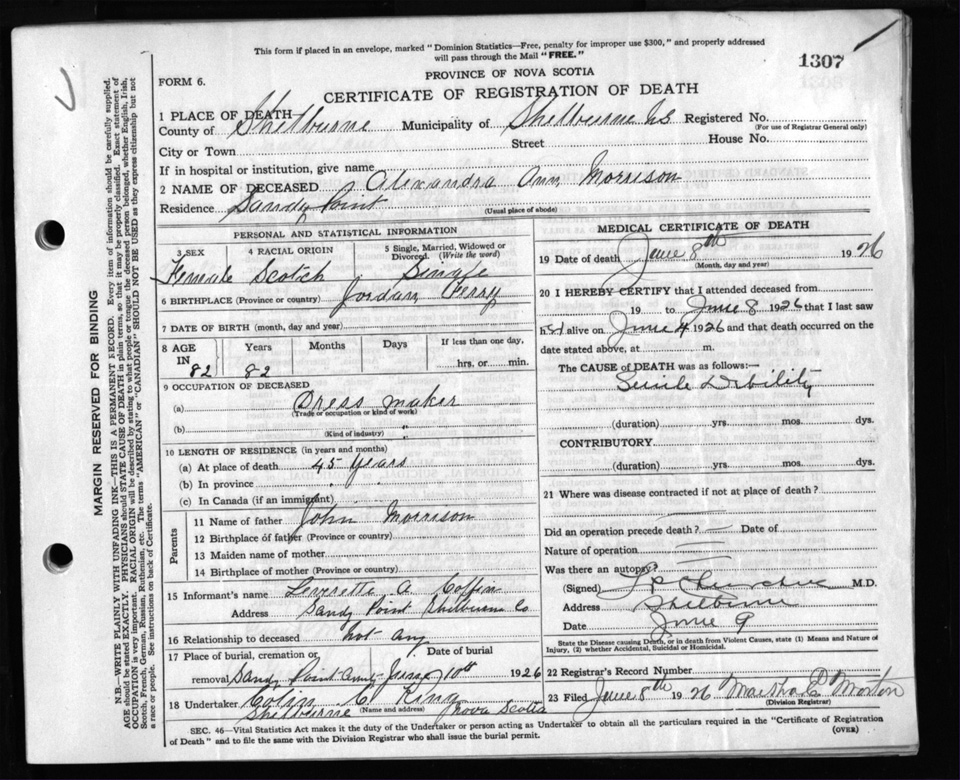 This form if placed in an envelope, marked "Dominion Statistics—Free, penalty for improper use $300," and properly addressed
will pass through the Mail "FREE."
1307
PROVINCE OF NOVA SCOTIA
FORM 6.
CERTIFICATE OF REGISTRATION OF DEATH
1 PLACE OF DEATH
County of Shelburne Municipality of Shelburne NS Registered No.
(For use of Registrar General only)
City or Town Street House No.
If in hospital or institution, give name
2 NAME OF DECEASED Alexandra Ann Morrison
Residence Sandy Point
(Usual place of abode)
PERSONAL AND STATISTICAL INFORMATION
3 SEX 4 RACIAL ORIGIN 5 Single, Married, Widowed or Divorced. (Write the word)
Female Scotch Single
6 BIRTHPLACE (Province or country) Jordan Ferry
7 DATE OF BIRTH (month, day and year)
8 AGE IN 82 Years 82 Months Days If less than one day, hrs. or min.
9 OCCUPATION OF DECEASED
(a) Dress maker
(Trade or occupation or kind of work)
(b)
(Kind of industry)
10 LENGTH OF RESIDENCE (in years and months)
(a) At place of death 45 Years
(b) In province
(c) In Canada (if an immigrant)
Parents
11 Name of father John Morrison
12 Birthplace of father (Province or country)
13 Maiden name of mother
14 Birthplace of mother (Province or country)
15 Informant's name Leverette A Coffin
Address Sandy Point Shelburne Co
16 Relationship to deceased not any
17 Place of burial, cremation or removal Sandy Point Date of burial June 10th 1926
18 Undertaker Colin C King
Shelburne (Name and address) Nova Scotia
MEDICAL CERTIFICATE OF DEATH
19 Date of death June 8th 1926
(Month, day and year)
20 I HEREBY CERTIFY that I attended deceased from
19 to June 8 1926 that I last saw
her alive on June 4 1926 and that death occurred on the
date stated above, at m.
The CAUSE of DEATH was as follows:
Senile Debility
(duration) yrs. mos. dys.
CONTRIBUTORY
(duration) yrs. mos. dys.
21 Where was disease contracted if not at place of death?
Did an operation precede death? — Date of
Nature of operation
Was there an autopsy?
(Signed) M.D.
Address Shelburne
Date June 9
State the Disease causing Death, or in death from Violent Causes, state (1) Means and Nature of
Injury, (2) whether Accidental, Suicidal or Homicidal.
22 Registrar's Record Number
23 Filed June 8th 1926 Martha D Morton
(Division Registrar)
SEC. 46—Vital Statistics Act makes it the duty of the Undertaker or person acting as Undertaker to obtain all the particulars required in the "Certificate of Registration
of Death" and to file the same with the Division Registrar who shall issue the burial permit.
(OVER)
MARGIN RESERVED FOR BINDING
N.B.—WRITE PLAINLY WITH UNFADING INK—THIS IS A PERMANENT RECORD. Every item of information should be carefully supplied.
AGE should be stated EXACTLY. PHYSICIANS should STATE CAUSE OF DEATH in plain terms, so that it may be properly classified. Exact statement of
OCCUPATION is very important. RACIAL ORIGIN will be described by stating to what people or tongue the deceased person belonged, whether English, Irish,
Scotch, French, German, Russian, Ruthenian, etc. The terms "AMERICAN" or "CANADIAN" SHOULD NOT BE USED as they express citizenship but not
a race or people. See instructions on back of Certificate.